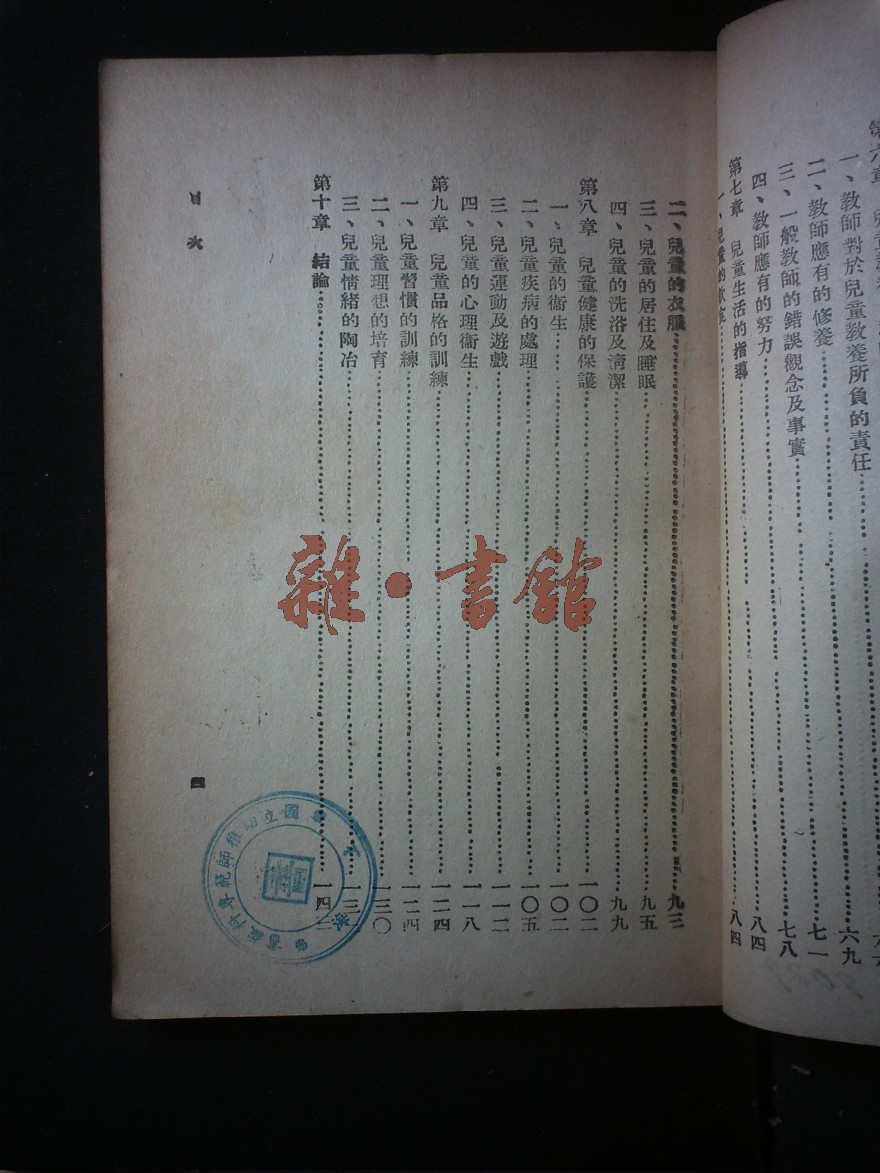 一、教師對於兒童教養所負的責任……六九
二、教師應有的修養……七一
三、一般教師的錯誤觀念及事實……七八
四、教師應有的努力……八四
第七章　兒童生活的指導……八四
二、兒童的衣服……九三
三、兒童的居住及睡眠……九五
四、兒童的洗浴及清潔……九九
第八章　兒童健康的保護……一〇二
一、兒童的衞生……一〇二
二、兒童疾病的處理……一〇五
三、兒童運動及遊戲……一一二
四、兒童的心理衞生……一一八
第九章　兒童品格的訓練……一二四
一、兒童習慣的訓練……一二四
二、兒童理想的培育……一三〇
三、兒童情緒的陶冶……
第十章　結論……
目次
四
國立幼稚師範專
圖書
雜·書館